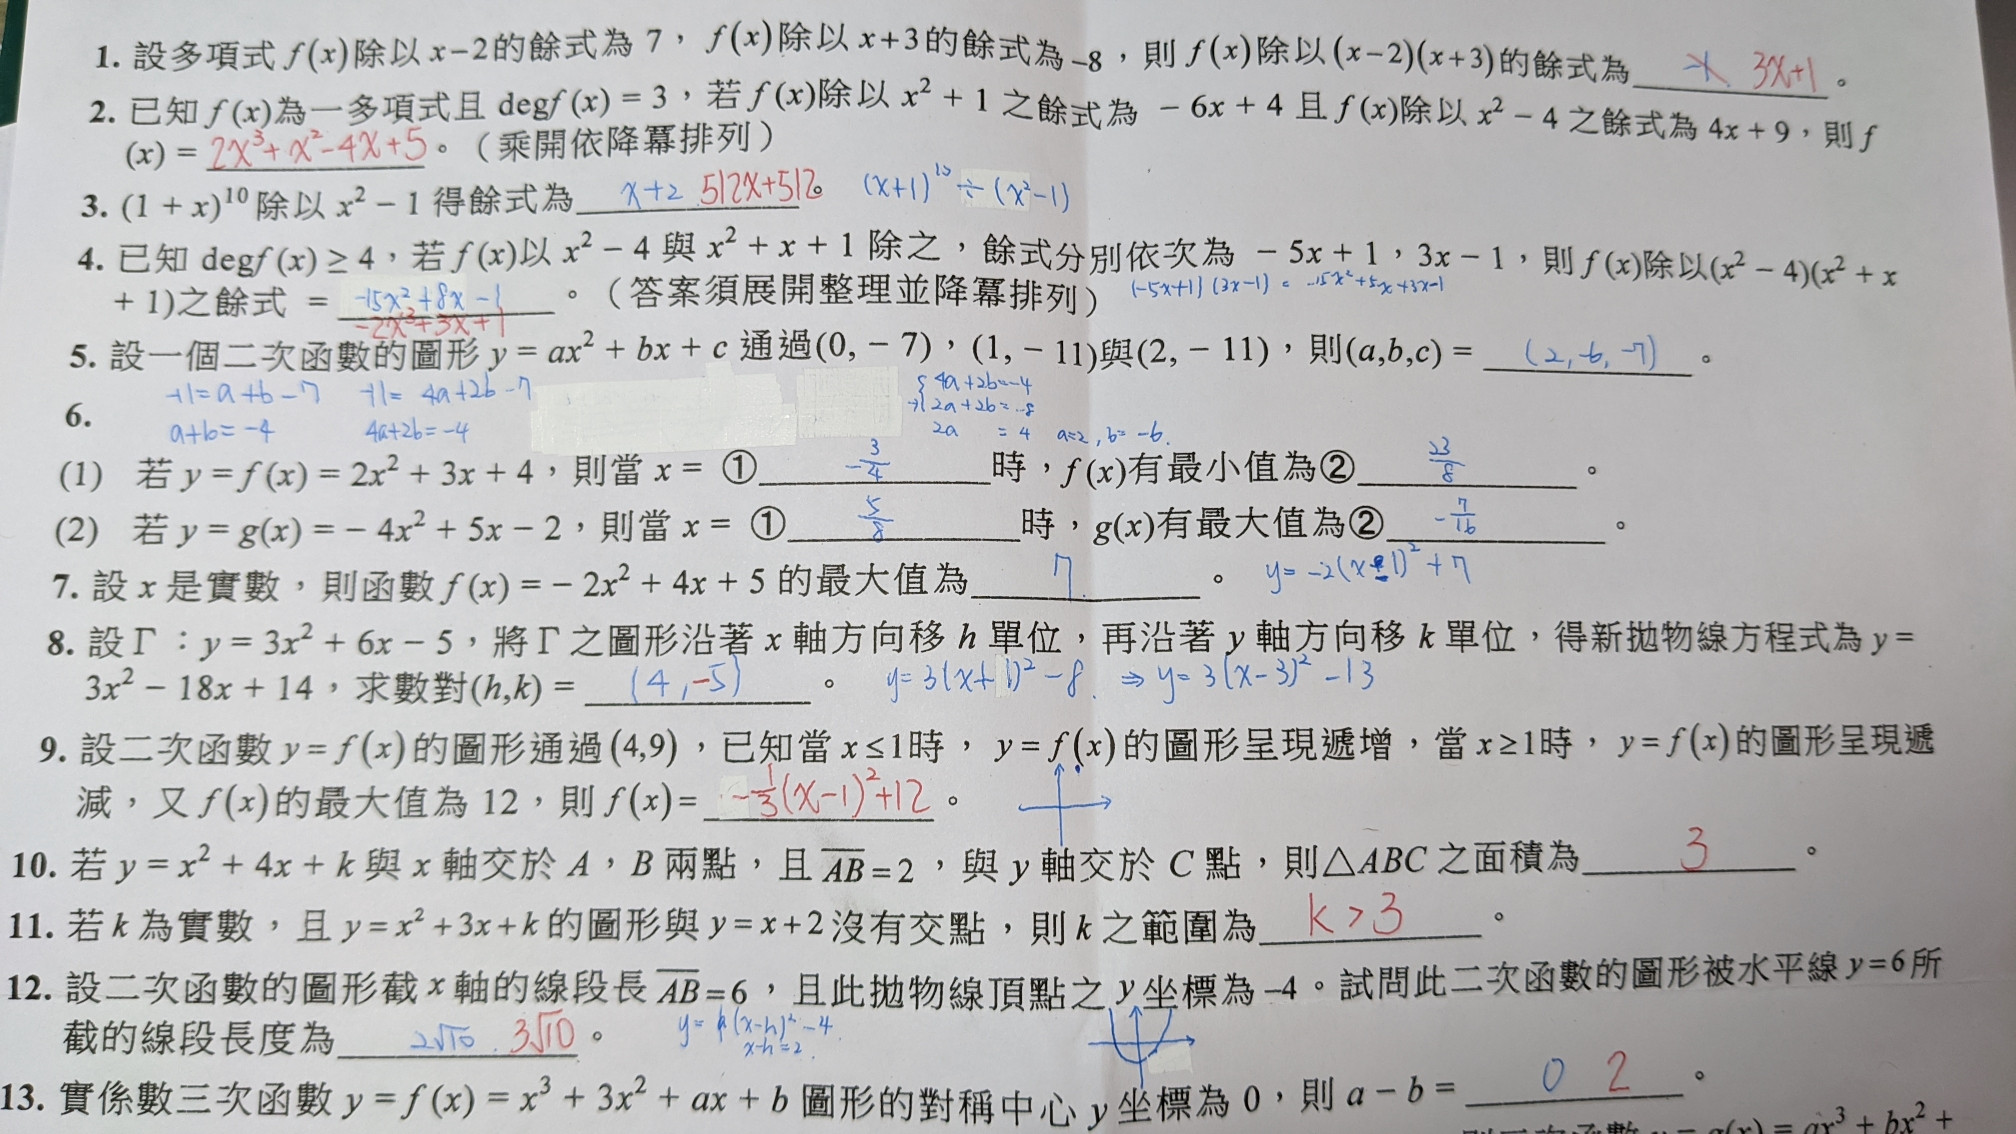 1. 設多項式 f(x)除以 x−2的餘式為 7，f(x)除以 x+3的餘式為 −8，則 f(x)除以 (x−2)(x+3)的餘式為 3x+1。
2. 已知 f(x)為一多項式且 degf(x) = 3，若 f(x)除以 x² + 1 之餘式為 − 6x + 4 且 f(x)除以 x² − 4 之餘式為 4x + 9，則 f
(x) = 2x³+x²-4x+5。（乘開依降冪排列）
3. (1 + x)¹⁰除以 x² − 1 得餘式為 x+2 512x+512。 (x+1)¹⁰÷(x²-1)
4. 已知 degf(x) ≥ 4，若 f(x)以 x² − 4 與 x² + x + 1 除之，餘式分別依次為 − 5x + 1，3x − 1，則 f(x)除以(x² − 4)(x² + x
+ 1)之餘式 = -15x²+8x-1。（答案須展開整理並降冪排列） (-5x+1)(3x-1) = -15x²+5x+3x-1
-2x³+3x+1
5. 設一個二次函數的圖形 y = ax² + bx + c 通過(0, − 7)，(1, − 11)與(2, − 11)，則(a,b,c) = (2,-6,-7)。
-11=a+b-7 -11= 4a+2b-7 4a+2b=-4
6. 2a+2b=-8
a+b=-4 4a+2b=-4 2a = 4 a=2, b=-6.
(1) 若 y = f(x) = 2x² + 3x + 4，則當 x = ① -3/4 時，f(x)有最小值為② 23/8。
(2) 若 y = g(x) = − 4x² + 5x − 2，則當 x = ① 5/8 時，g(x)有最大值為② -7/16。
7. 設 x 是實數，則函數 f(x) = − 2x² + 4x + 5 的最大值為 7。 y=-2(x-1)²+7
8. 設Γ：y = 3x² + 6x − 5，將Γ之圖形沿著 x 軸方向移 h 單位，再沿著 y 軸方向移 k 單位，得新拋物線方程式為 y =
3x² − 18x + 14，求數對(h,k) = (4,-5)。 y=3(x+1)²-8. ⇒ y=3(x-3)²-13
9. 設二次函數 y = f(x)的圖形通過(4,9)，已知當 x ≤ 1時，y = f(x)的圖形呈現遞增，當 x ≥ 1時，y = f(x)的圖形呈現遞
減，又 f(x)的最大值為 12，則 f(x)= -1/3(x-1)²+12。
10. 若 y = x² + 4x + k 與 x 軸交於 A，B 兩點，且 AB = 2，與 y 軸交於 C 點，則△ABC 之面積為 3。
11. 若 k 為實數，且 y = x² + 3x + k 的圖形與 y = x + 2 沒有交點，則 k 之範圍為 k>3。
12. 設二次函數的圖形截 x 軸的線段長 AB = 6，且此拋物線頂點之 y 坐標為 −4。試問此二次函數的圖形被水平線 y = 6 所
截的線段長度為 2√10 3√10。 (x-h)²-4
x-h=2
13. 實係數三次函數 y = f(x) = x³ + 3x² + ax + b 圖形的對稱中心 y 坐標為 0，則 a − b = 0 2。